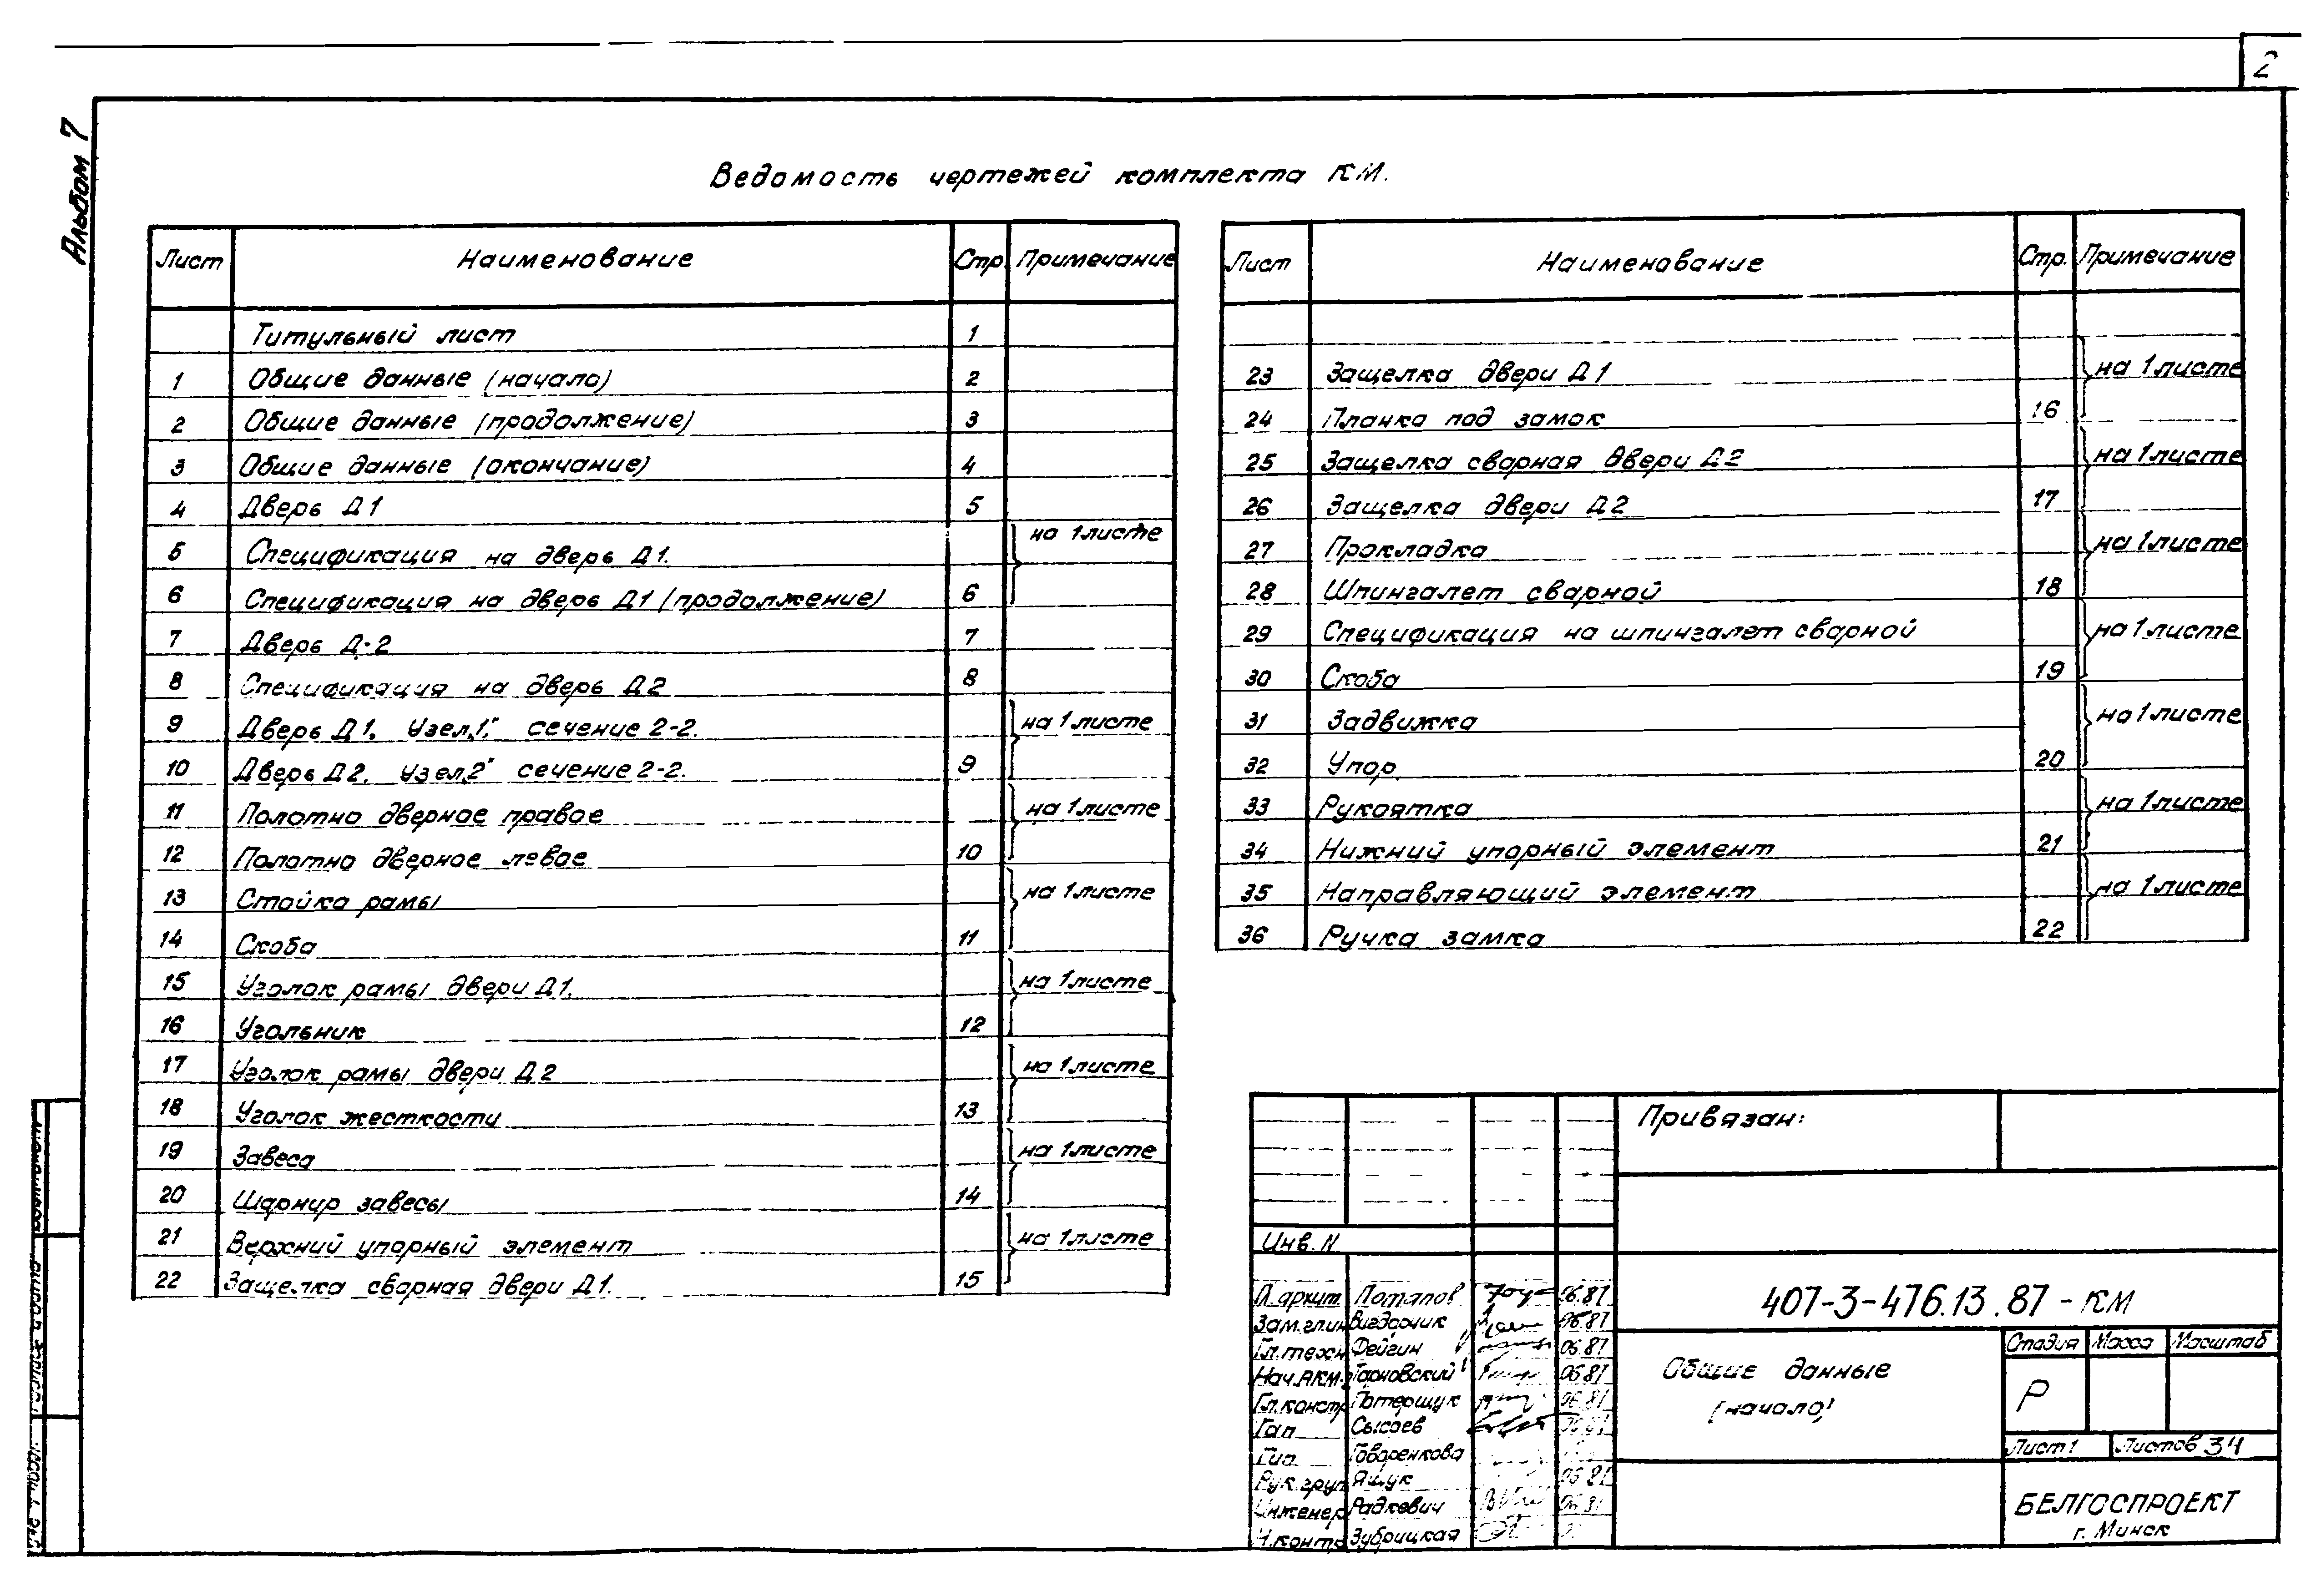 2
Альбом 7
Ведомость чертежей комплекта КМ.
Лист Наименование Стр. Примечание
Титульный лист 1
1 Общие данные (начало) 2
2 Общие данные (продолжение) 3
3 Общие данные (окончание) 4
4 Дверь Д1 5
5 Спецификация на дверь Д1. на 1 листе
6 Спецификация на дверь Д1 (продолжение) 6
7 Дверь Д-2 7
8 Спецификация на дверь Д2 8
9 Дверь Д1. Узел „1". сечение 2-2. на 1 листе
10 Дверь Д2. Узел „2" сечение 2-2. 9
11 Полотно дверное правое на 1 листе
12 Полотно дверное левое 10
13 Стойка рамы на 1 листе
14 Скоба 11
15 Уголок рамы двери Д1. на 1 листе
16 Угольник 12
17 Уголок рамы двери Д2 на 1 листе
18 Уголок жесткости 13
19 Завеса на 1 листе
20 Шарнир завесы 14
21 Верхний упорный элемент на 1 листе
22 Защелка сварная двери Д1. 15
Лист Наименование Стр. Примечание
23 Защелка двери Д1 на 1 листе
24 Планка под замок 16
25 Защелка сварная двери Д2 на 1 листе
26 Защелка двери Д2 17
27 Прокладка на 1 листе
28 Шпингалет сварной 18
29 Спецификация на шпингалет сварной на 1 листе
30 Скоба 19
31 Задвижка на 1 листе
32 Упор. 20
33 Рукоятка на 1 листе
34 Нижний упорный элемент 21
35 Направляющий элемент на 1 листе
36 Ручка замка 22
Привязан:
Инв. N
Гл. архит. Потапов 06.87
Зам.гл.ин Вигдорчик 06.87
Гл.техн Фейгин 06.87
Нач.АКМ-2 Тарновский 06.87
Гл.констр Патерщук 06.87
Гап Сысоев
Гип Говоренкова
Рук.груп Ящук 06.87
Инженер Радкевич 06.87
Н.контр Зубрицкая
407-3-476.13.87-КМ
Общие данные
(начало)
Стадия Масса Масштаб
Р
Лист 1 Листов 34
БЕЛГОСПРОЕКТ
г. Минск